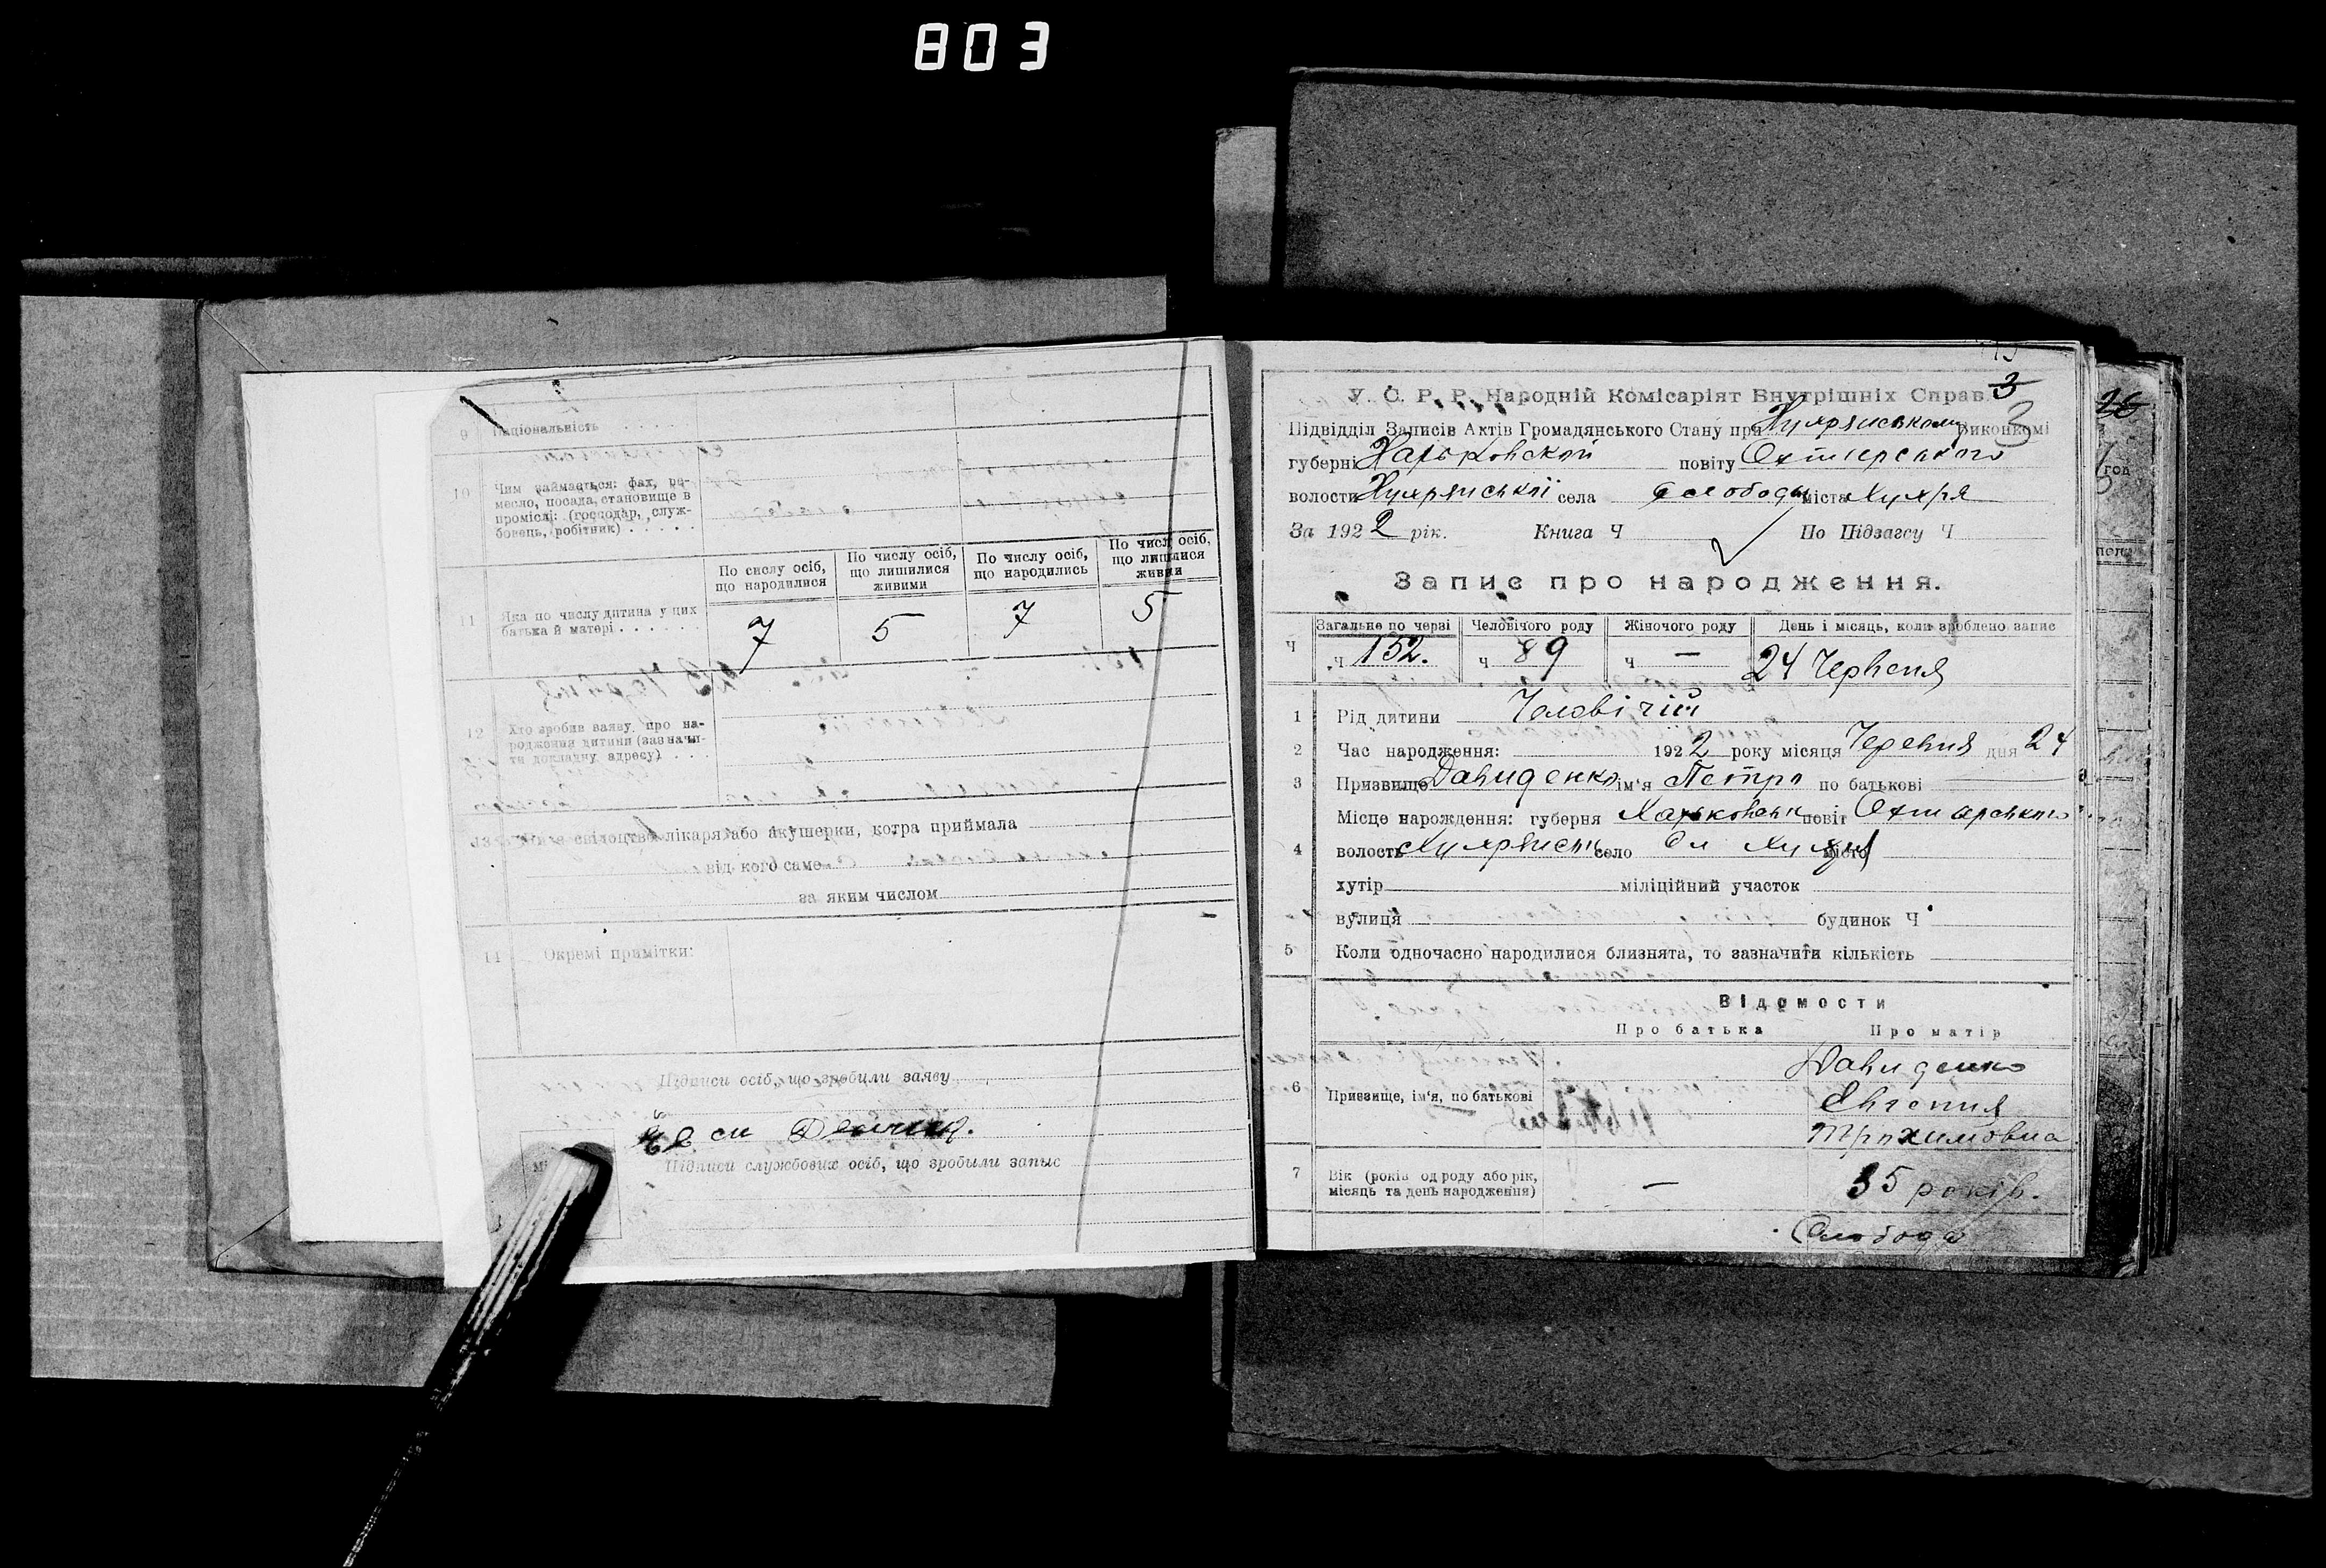 803
9 Національність . . . . .
10 Чим займається: фах, ре-
месло, посада, становище в
промислі: (господар, служ-
бовець, робітник) . . . . . .
По числу осіб, що народилися
По числу осіб, що лишилися живими
По числу осіб, що народились
По числу осіб, що лишися живии
11 Яка по числу дитина у цих
батька й матері . . . . . .
7 5 7 5
12 Хто зробив заяву про на-
родження дитини (зазначи-
ти докладну адресу) . . .
13 свідоцтво лікаря або акушерки, котра приймала
від кого саме
за яким числом
14 Окремі примітки:
Підписи осіб, що зробили заяву
Підписи службових осіб, що зробыли запыс
3
3
У. С. Р. Р. Народній Комісаріят Внутрішніх Справ.
Підвідділ Записів Актів Громадянського Стану при Виконкомі
губерні Харьковской повіту Охтирського
волости села слободы міста Хухря
За 1922 рік. Книга Ч По Підзагсу Ч
Запис про народження.
Загальне по черзі Человічого роду Жіночого роду День і місяць, коли зроблено запис
Ч ч 152. ч 89 ч — 24 Червня
1 Рід дитини Чоловічій
2 Час народження: 1922 року місяця Червня дня 24
3 Призвище Давиденко ім'я Петро по батькові
Місце нарождення: губерня Харьковськ повіт Охтирського
4 волость село сл Хухря місто
хутір міліційний участок
вулиця будинок Ч
5 Коли одночасно народилися близнята, то зазначити кількість
Відомости
Про батька Про матір
6 Призвище, ім'я, по батькові
Давиденко
Евгения
Трохимовна
7 Вік (років од роду або рік,
місяць та день народження) — 35 років.
Слобода
26
год